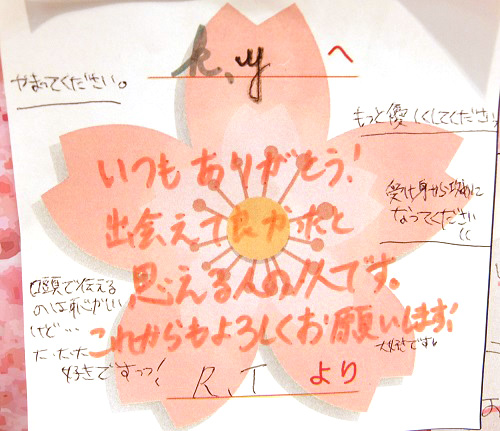 k.y へ
やまってください。
もっと優しくしてください
いつもありがとう!
受け身から攻めに
なってください
出会えて良かったと
思える人の1人です。
口頭で伝える
のは恥ずかしい
けど…
これからもよろしくお願いします!
た・た・た
好きですっっ!
大好きです
R.T より